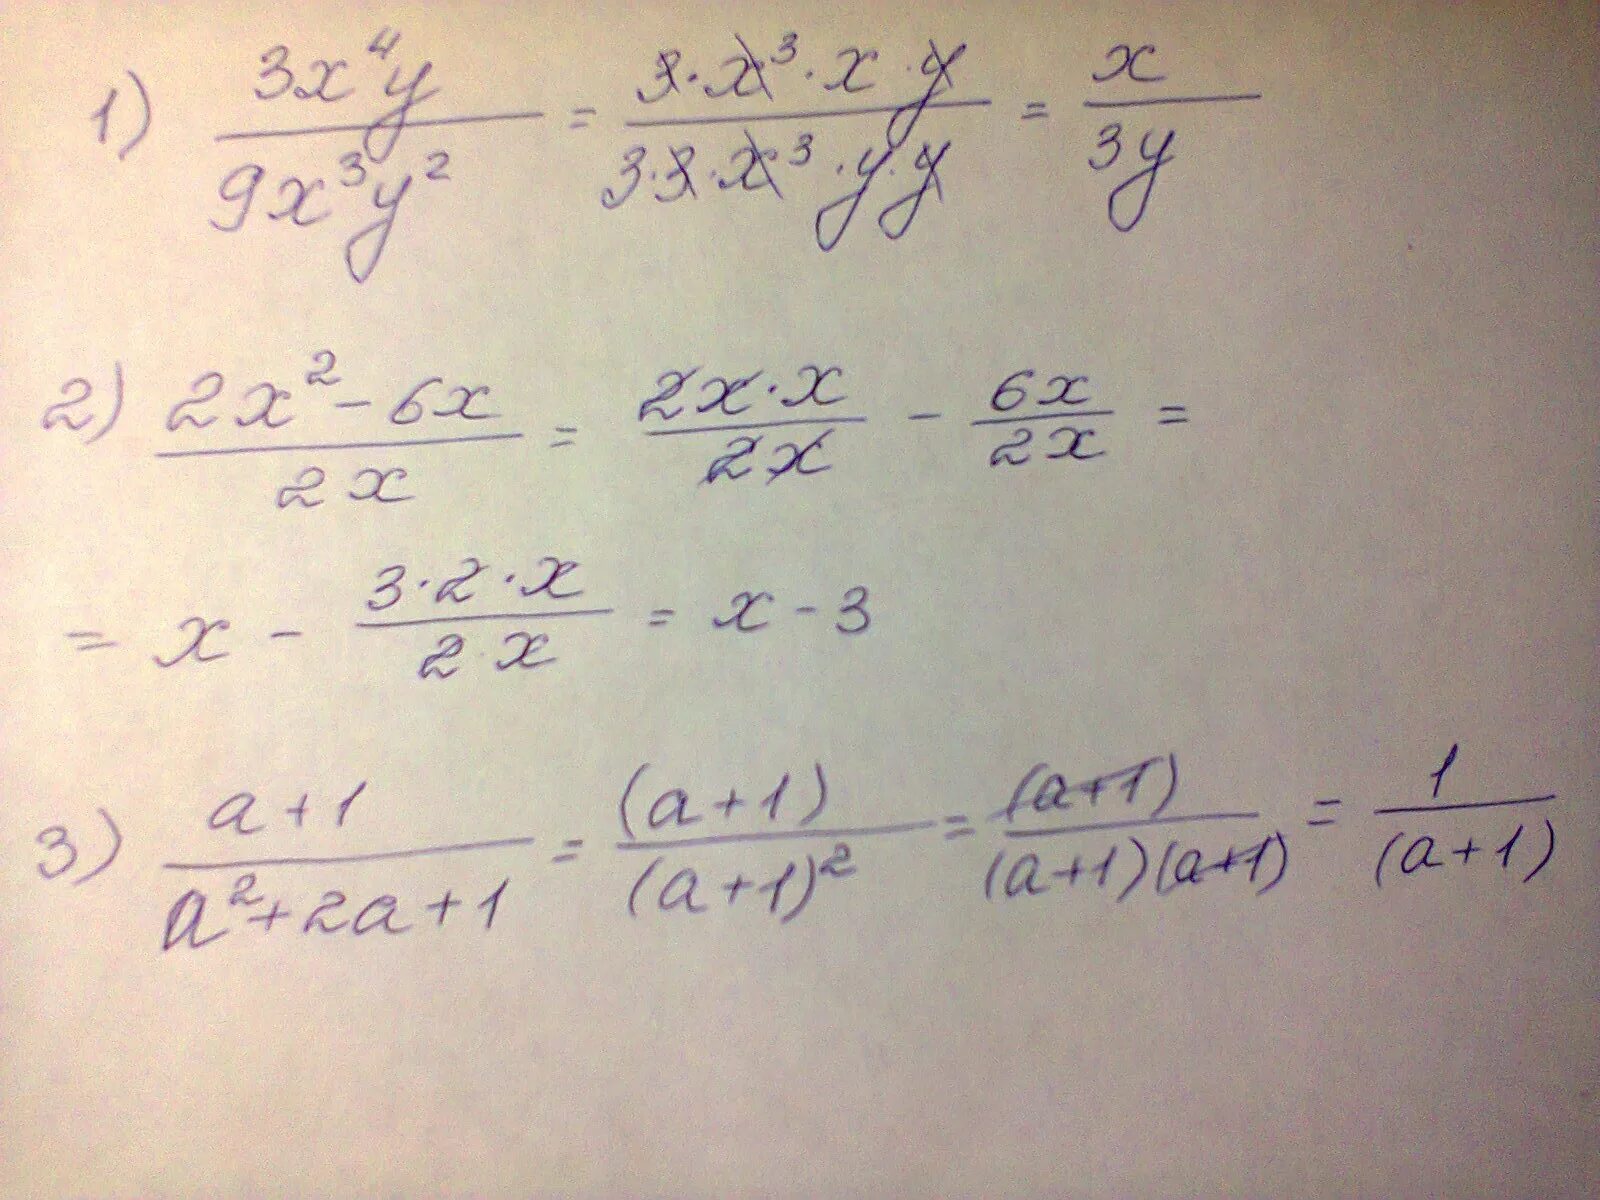 1) 3x⁴y / 9x³y² = 3·x³·x·y / 3·3·x³·y·y = x / 3y
2) 2x² - 6x / 2x = 2x·x / 2x - 6x / 2x =
= x - 3·2·x / 2·x = x - 3
3) a+1 / a²+2a+1 = (a+1) / (a+1)² = (a+1) / (a+1)(a+1) = 1 / (a+1)